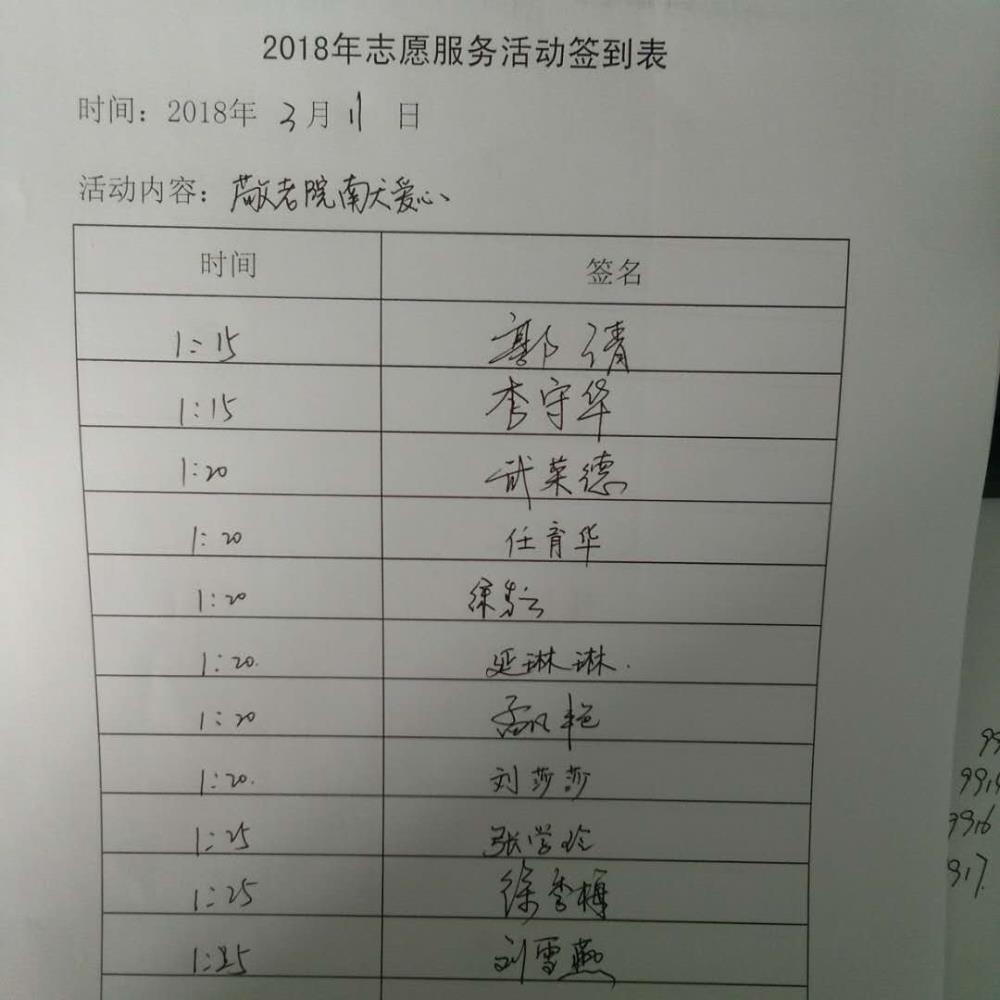 2018年志愿服务活动签到表
时间：2018年 3月 11 日
活动内容：敬老院南大爱心
时间 签名
1:15 郭倩
1:15 李守华
1:20 武荣德
1:20 任育华
1:20 徐
1:20. 延琳琳.
1:20 孟凡艳
1:20. 刘莎莎
1:25 张学玲
1:25 徐秀梅
1:25 刘雪燕
99
9915
9916
917.